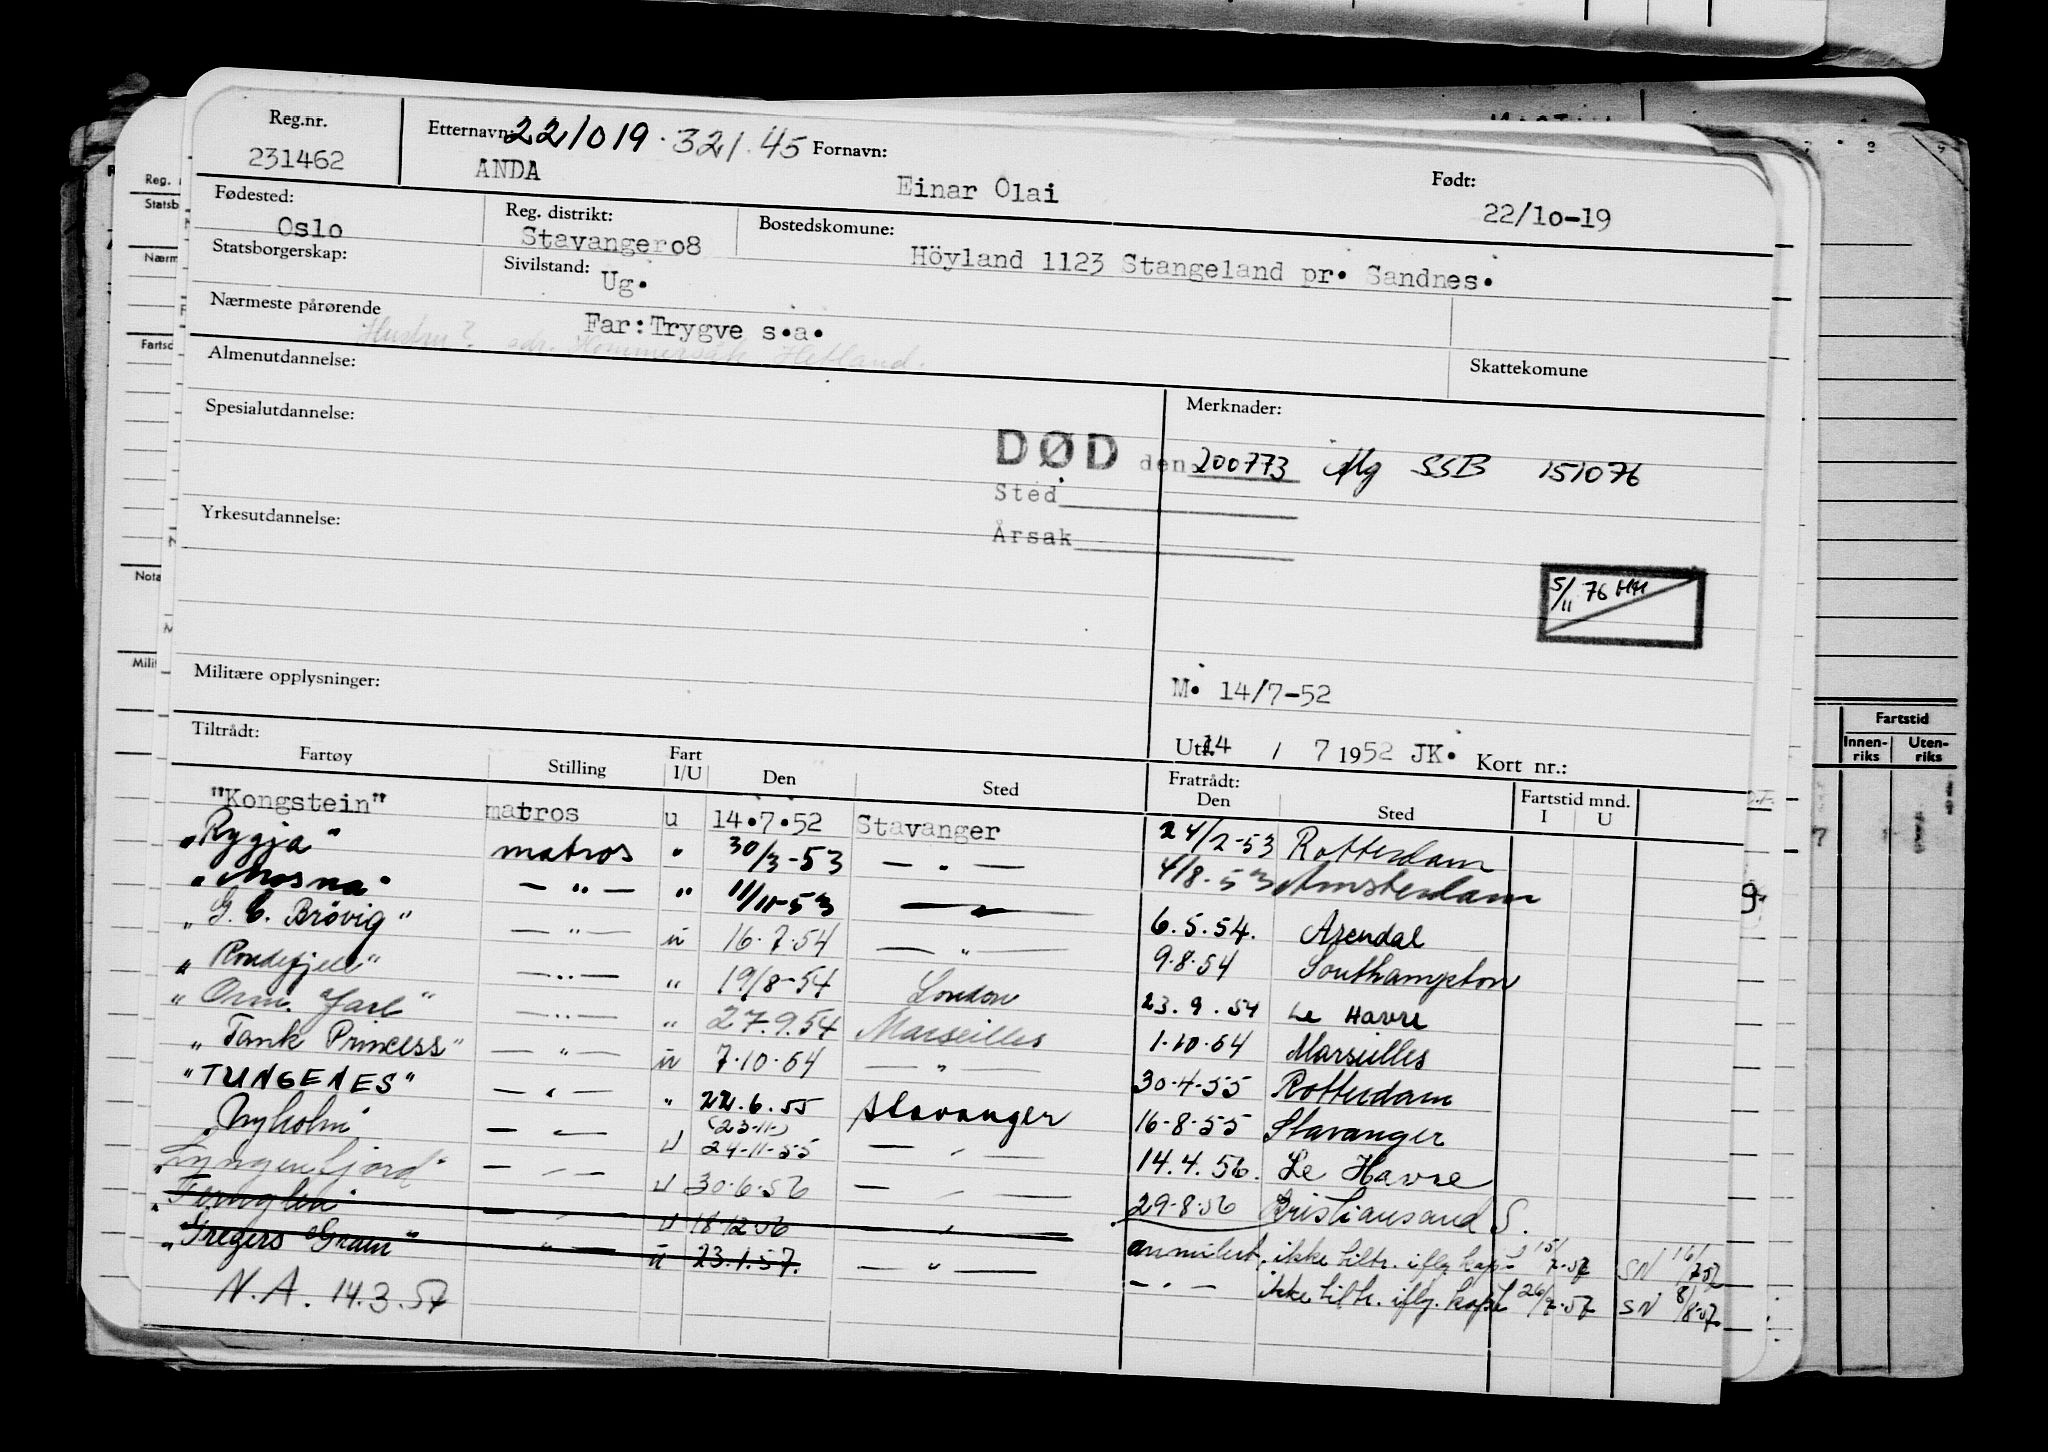 Reg.nr. Etternavn: 221019.321.45 Fornavn: Født:
231462 ANDA Einar Olai 22/10-19
Fødested: Reg. distrikt: Bostedskomune:
Oslo Stavanger 08 Höyland 1123 Stangeland pr. Sandnes.
Statsborgerskap: Sivilstand: Ug.
Nærmeste pårørende Far: Trygve s.a.
Hustru? adr. Hommersåk Hetland.
Almenutdannelse: Skattekomune
Spesialutdannelse: Merknader:
DØD den 200773 Mg SSB 151076
Sted
Årsak
Yrkesutdannelse:
5/11 76 HH
Militære opplysninger: M. 14/7-52
Utf. 14 / 7 1952 JK. Kort nr.:
Tiltrådt: Fratrådt:
Fartøy Stilling Fart I/U Den Sted Den Sted Fartstid mnd. I U
"Kongstein" matros u 14.7.52 Stavanger 24/2-53 Rotterdam
"Rygja" matros " 30/3-53 — " — 4/8-53 Amsterdam
"Mosna" — " — " 11/11-53 — " — 6.5.54. Arendal
"G. C. Brövig" — " — u 16.7.54 — " — 9.8.54 Southampton
"Rondefjell" — " — " 19/8-54 London 23.9.54 Le Havre
"Orm Jarl" — " — " 27.9.54 Marseilles 1.10.54 Marseilles
"Tank Princess" — " — u 7.10.54 — " — 30.4.55 Rotterdam
"TUNGENES" — " — " 22.6.55 Stavanger 16-8-55 Stavanger
"Nyholm" — " — U (23-11-) 24-11-55 — " — 14.4.56. Le Havre
"Lyngenfjord" — " — U 30.6.56 — " — 29-8-56 Kristiansand S.
"Fernglen" — " — U 18.12.56 — " — annulert, ikke tiltr. iflg. kapt 15/7-57 SN 16/7-57
"Gregers Gram" " u 23.1.57. — " — — " — ikke tiltr. iflg. kapt 26/7-57 SN 8/8-57
N.A. 14.3.57
Reg.
Statsb
Nærm
Fartsc
Nota
Milit
Fartstid
Innen-riks Uten-riks